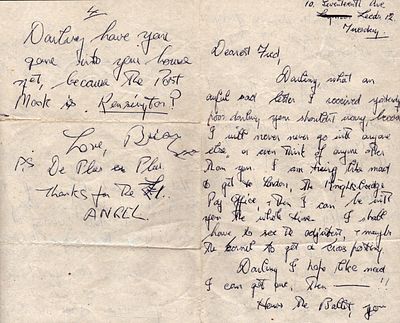 4
Darling, have you
gone into your house
yet, because the Post
Mark is Kensington?
Love, Brian
P.S. De Plus en Plus.
Thanks for the £1.
ANGEL.
10. Seventeenth Ave
Leeds 12.
Tuesday.
Dearest Fred
Darling, what an
awful sad letter I received yesterday
Poor darling you shouldn't worry, because
I will never never go with anyone
else, or even think of anyone other
than you. I am trying like mad
to get to London, the Knightsbridge
Pay Office, then I can be with
you the whole time. I shall
have to see the adjutant, & maybe
the colonel to get a cross posting
Darling I hope like mad
I can get one, then — !!
Hows The Ballet, you